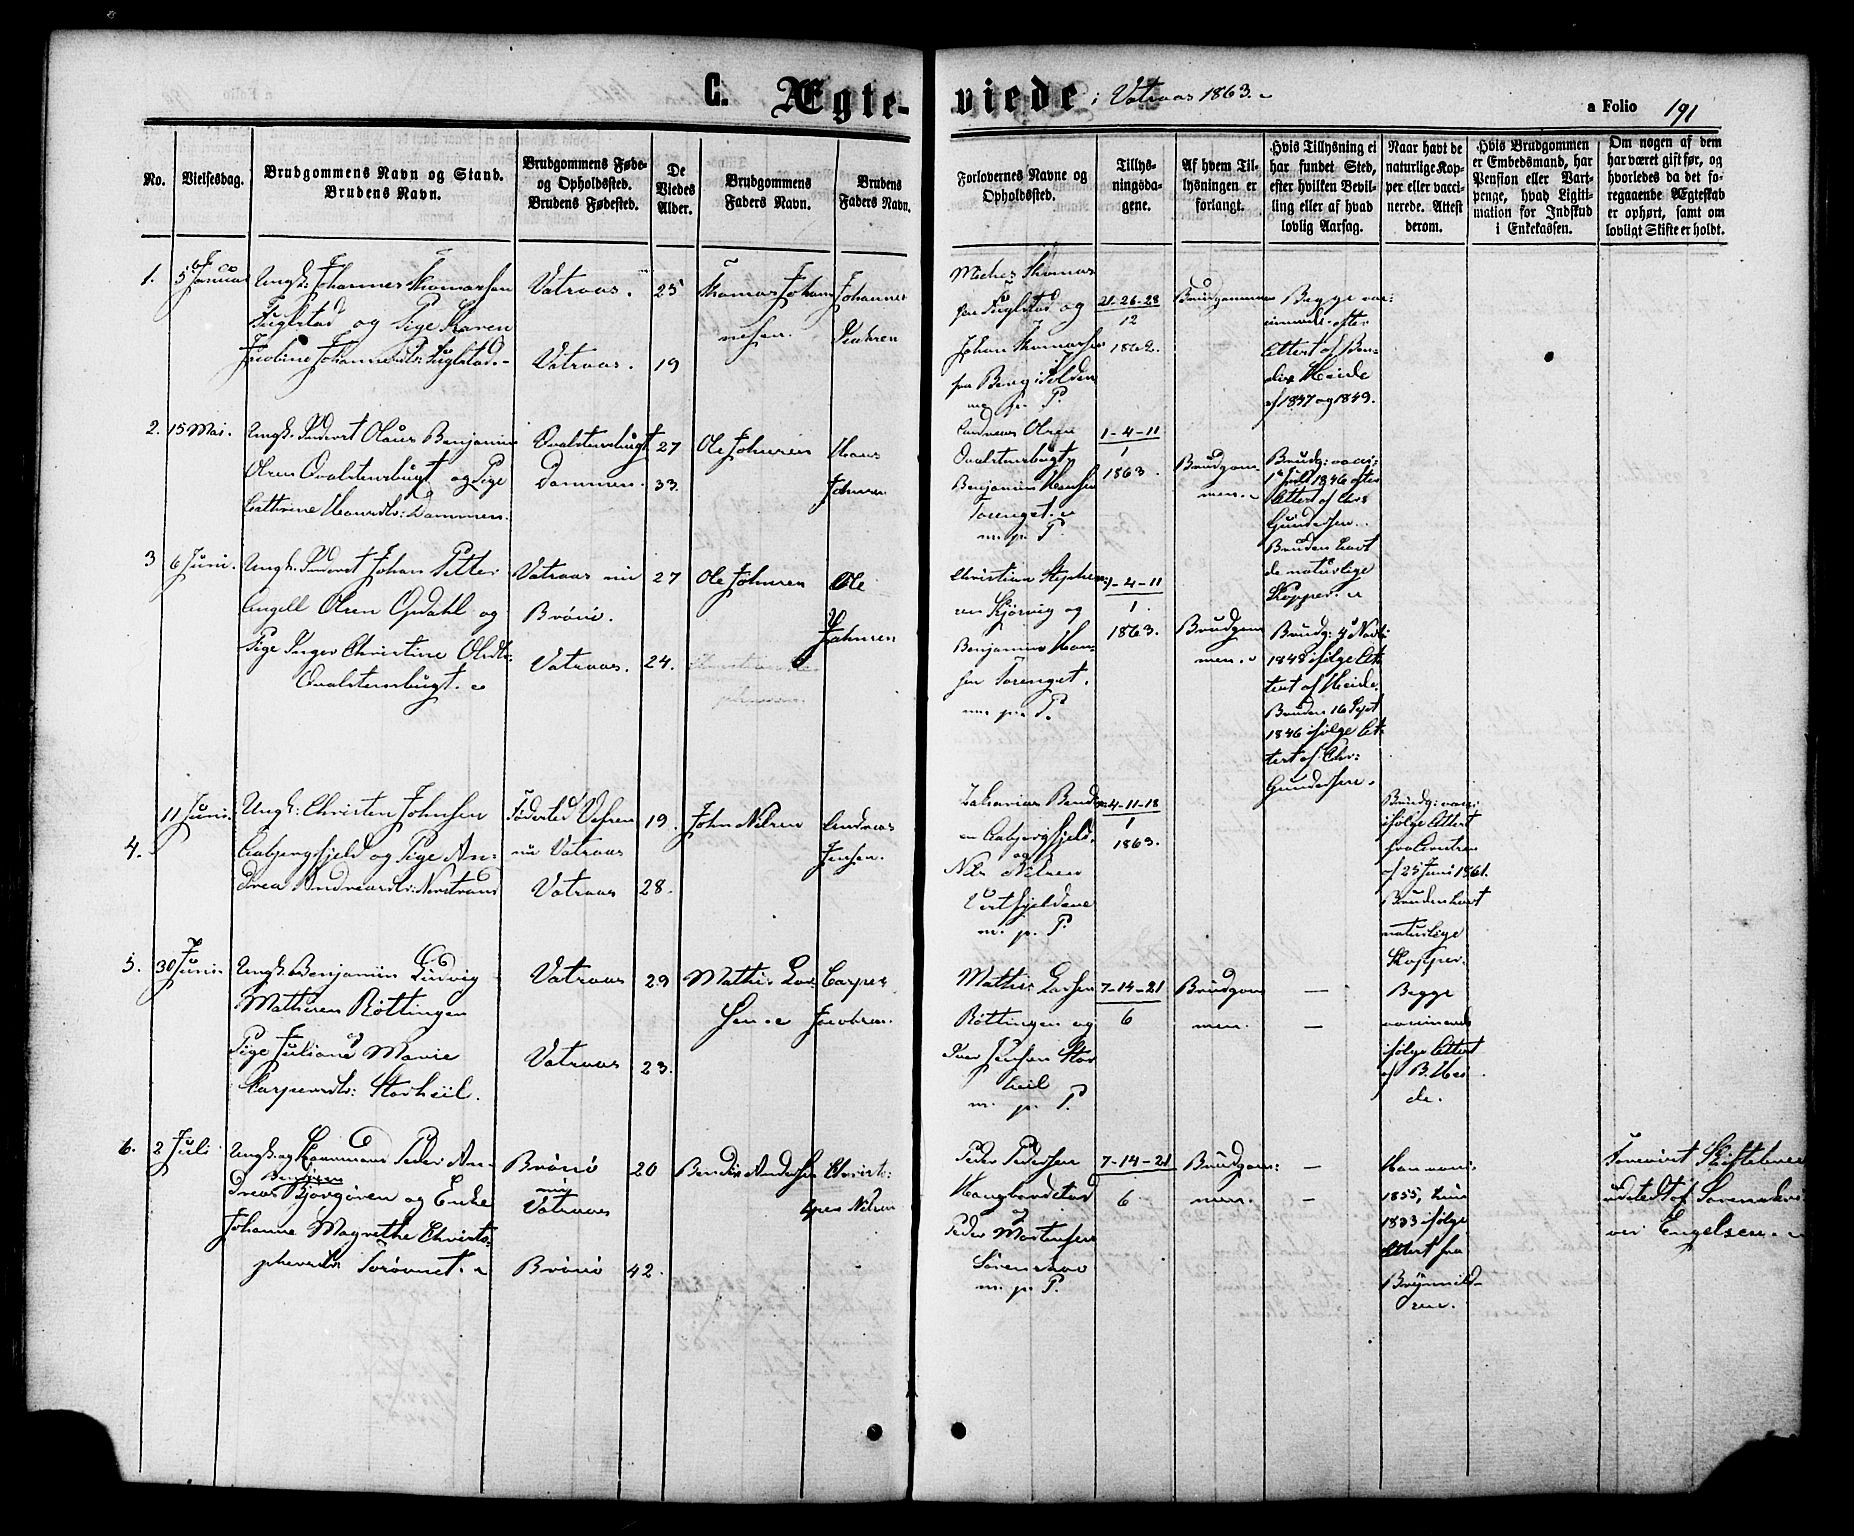 C. Ægte-viede i Vatnaas 1863.
a Folio 191
No.
Vielsesdag.
Brudgommens Navn og Stand.
Brudens Navn.
Brudgommens Føde-
og Opholdssted.
Brudens Fødested.
De
Viedes
Alder.
Brudgommens
Faders Navn.
Brudens
Faders Navn.
Forlovernes Navne og
Opholdssted.
Tillys-
ningsda-
gene.
Af hvem Til-
lysningen er
forlangt.
Hvis Tillysning ei
har fundet Sted,
efter hvilken Bevil-
ling eller af hvad
lovlig Aarsag.
Naar havt de
naturlige Kop-
per eller vacci-
nerede. Attest
derom.
Hvis Brudgommen
er Embedsmand, har
Pension eller Vart-
penge, hvad Ligiti-
mation for Indskud
i Enkekassen.
Om nogen af dem
har været gift før, og
hvorledes da det fo-
regaaende Ægteskab
er ophørt, samt om
lovligt Skifte er holdt.
1.
5 Januar
Ungk: Johannes Thomassen
Fuglstad og Pige Karen
Jacobine Johannesdtr Fuglstad.
Vatnaas.
Vatnaas.
25
19
Thomas Johan-
nesen.
Johannes
21-26-28
12
1862.
Brudgommen
Begge vac-
cinerede efter
Attest af Ben-
dix Heide
af 1837 og 1843.
Johan Thomassen
m. p. P.
2.
15 Mai.
Ungk. Olaus Benjamin
Olsen Qvalstensbugt og Pige
Cathrine Hansdtr: Dammen.
Qvalstensbugt
Dammen.
27
33.
Ole Johnsen
Hans
Johnsen
Andreas Olsen
Qvalstensbugt
Benjamin Hansen
Torenget.
m. p. P.
1-4-11
1
1863.
Brudgom-
men.
Brudg: vacc:
1846 efter
Attest af Chr
Gundersen.
Bruden havt
de naturlige
Kopper.
3
6 Juni.
Ungk. Johan Petter
Angell Olsen Opdahl og
Pige Inger Christine Olsdtr:
Qvalstensbugt.
Vatnaas nu
Brönö.
Vatnaas.
27
24.
Ole Johnsen
Ole
Johnsen
Christian Stephen-
sen Skjørvig og
Benjamin Han-
sen Torenget.
m. p. P.
1-4-11
1.
1863.
Brudgom-
men.
Brudg:
1848 ifølge At-
test af Heide.
Bruden 16 Sept
1846 ifølge At-
test af Chr:
Gundersen.
4.
11 Juni.
Ungk: Christen Johnsen
Aabjergfjeld og Pige An-
drea Andreasdtr: Nerstrand
Födested Vefsen
nu Vatnaas
Vatnaas
19.
28.
John Nilsen
Andreas
Jensen.
Zakarias Bendt-
sen Aabjergfjeld.
og
Nils Nilsen
m. p. P.
4-11-18
1
1863.
Brudg: vacc:
ifølge Attest
af 25 Juni 1861.
Bruden havt
naturlige
Kopper.
5.
30 Juni
Ungk. Benjamin Ludvig
Mathisen Röttingen
og
Pige Juliane Marie
Kaspersdtr: Storheil.
Vatnaas
Vatnaas
29
23.
Mathis Lar-
sen
Casper
Jacobsen.
Mathis Larsen
Röttingen og
Iver Jensen Stor
heil
m. p. P.
7-14-21
6
Brudgom
men.
Begge
vaccinerede
ifølge Attest
af B. Hei
de.
6.
2 Juli
Ungk. og Peder An-
dreas Bendixen og Enke
Johanne Magrethe Christo-
phersdtr Torövnet.
Brönö
nu
Vatnaas
Brönö
20
42.
Bendix Andersen
Christo-
pher Nilsen
Peder Pedersen
og
Peder Mortensen
m. p. P.
7-14-21
6
Brudgom-
men.
Han vac:
1855, hun
1833 ifølge
Attest fra
Forevist Skiftebrev
udstedt af Sorenskri-
ver Engelsen.